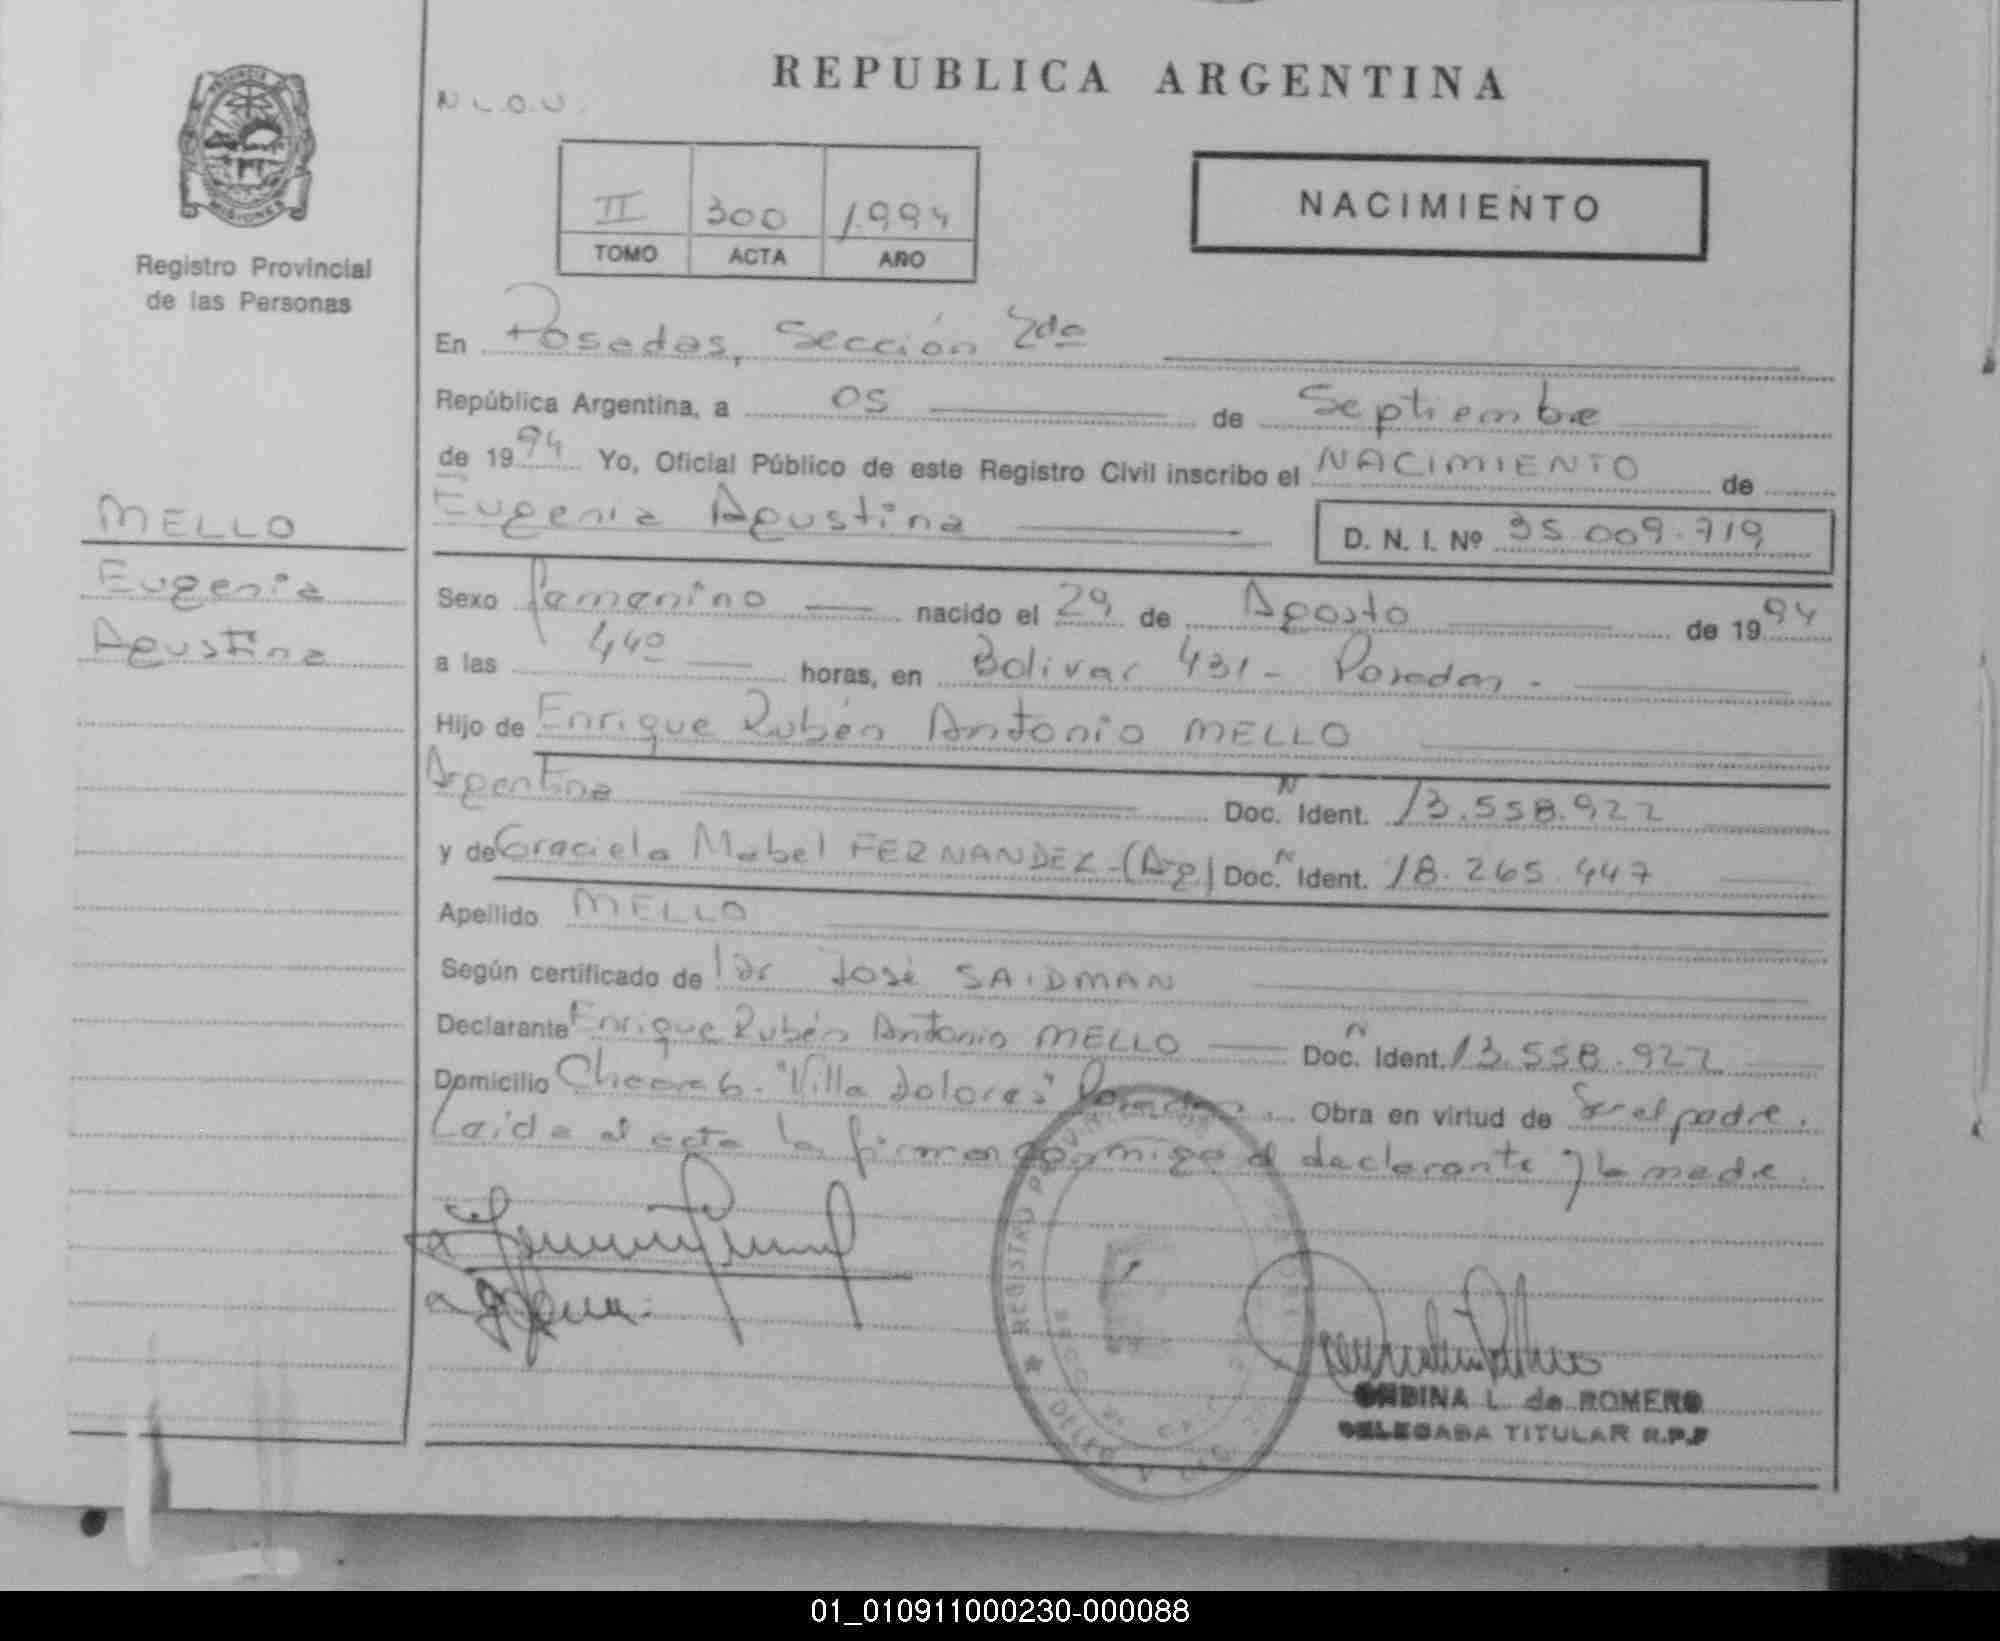 REPUBLICA ARGENTINA
PROVINCIA
MISIONES
Registro Provincial
de las Personas
N L.O.U.
II 300 1.994
TOMO ACTA AÑO
NACIMIENTO
En Posadas, Sección 2da
República Argentina, a 05 de Septiembre
de 1994 Yo, Oficial Público de este Registro Civil inscribo el NACIMIENTO de
Eugenia Agustina D. N. I. Nº 35.009.719
MELLO
Eugenia
Agustina
Sexo femenino nacido el 29 de Agosto de 1994
a las 440 horas, en Bolivar 431 - Posadas -
Hijo de Enrique Rubén Antonio MELLO
Argentina Doc. N Ident. 13.558.922
y de Graciela Mabel FERNANDEZ - (Arg) Doc. N Ident. 18.265.447
Apellido MELLO
Según certificado de Dr José SAIDMAN
Declarante Enrique Rubén Antonio MELLO Doc. N Ident. 13.558.922
Domicilio Chacra 6 - "Villa Dolores" Posadas. Obra en virtud de Ser el padre.
Leída el acta la firman conmigo el declarante y la madre.
REGISTRO PROVINCIAL
ONDINA L. de ROMERO
DELEGADA TITULAR R.P.P
01_010911000230-000088